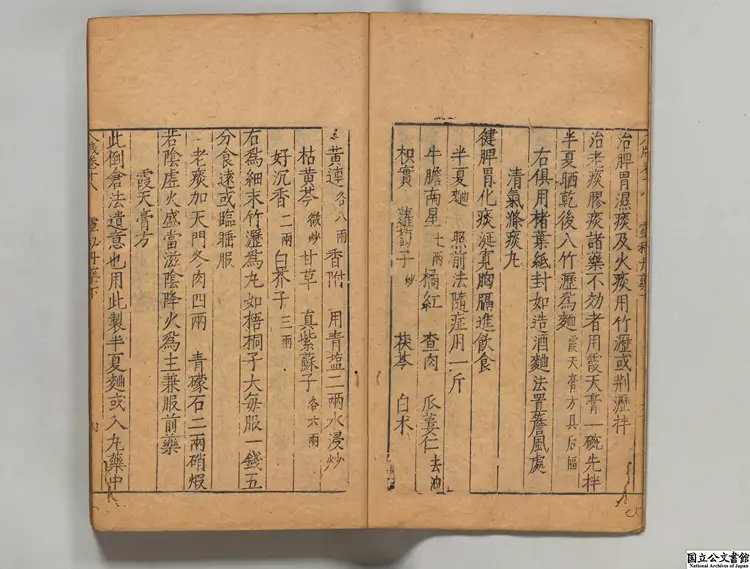 治脾胃濕痰及火痰用竹瀝或荆瀝拌
治老痰膠痰諸藥不効者用霞天膏一碗先拌
半夏晒乾後入竹瀝爲麯霞天膏方具后幅
右俱用楮葉紙封如造酒麯法置簷風處
清氣滌痰丸
健脾胃化痰涎寬胸膈進飲食
半夏麯 照前法隨症用一斤
牛膽南星七兩 橘紅 查肉 瓜蔞仁去油
枳實 蘿蔔子炒 茯苓 白术
黄連各八兩 香附 用青塩二兩水浸炒
枯黄芩微炒 甘草 真紫蘇子各六兩
好沉香二兩 白芥子三兩
右爲細末竹瀝爲丸如梧桐子大每服一錢五
分食遠或臨睡服
老痰加天門冬肉四兩 青礞石二兩硝煆
若陰虚火盛當滋陰降火爲主兼服前藥
霞天膏方
此倒倉法遺意也用此製半夏麯或入丸藥中
国立公文書館
National Archives of Japan